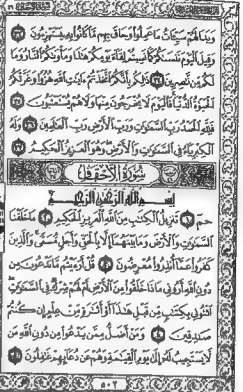 وَبَدَا لَهُمْ سَيِّئَاتُ مَا عَمِلُوا وَحَاقَ بِهِم مَّا كَانُوا بِهِ يَسْتَهْزِئُونَ ٣٣
وَقِيلَ الْيَوْمَ نَنسَاكُمْ كَمَا نَسِيتُمْ لِقَاءَ يَوْمِكُمْ هَٰذَا وَمَأْوَاكُمُ النَّارُ وَمَا
لَكُم مِّن نَّاصِرِينَ ٣٤ ذَٰلِكُم بِأَنَّكُمُ اتَّخَذْتُمْ آيَاتِ اللَّهِ هُزُوًا وَغَرَّتْكُمُ
الْحَيَاةُ الدُّنْيَا فَالْيَوْمَ لَا يُخْرَجُونَ مِنْهَا وَلَا هُمْ يُسْتَعْتَبُونَ ٣٥
فَلِلَّهِ الْحَمْدُ رَبِّ السَّمَاوَاتِ وَرَبِّ الْأَرْضِ رَبِّ الْعَالَمِينَ ٣٦ وَلَهُ
الْكِبْرِيَاءُ فِي السَّمَاوَاتِ وَالْأَرْضِ وَهُوَ الْعَزِيزُ الْحَكِيمُ ٣٧
سُورَةُ الْأَحْقَافِ
بِسْمِ اللَّهِ الرَّحْمَٰنِ الرَّحِيمِ
حم ١ تَنزِيلُ الْكِتَابِ مِنَ اللَّهِ الْعَزِيزِ الْحَكِيمِ ٢ مَا خَلَقْنَا
السَّمَاوَاتِ وَالْأَرْضَ وَمَا بَيْنَهُمَا إِلَّا بِالْحَقِّ وَأَجَلٍ مُّسَمًّى وَالَّذِينَ
كَفَرُوا عَمَّا أُنذِرُوا مُعْرِضُونَ ٣ قُلْ أَرَأَيْتُم مَّا تَدْعُونَ مِن
دُونِ اللَّهِ أَرُونِي مَاذَا خَلَقُوا مِنَ الْأَرْضِ أَمْ لَهُمْ شِرْكٌ فِي السَّمَاوَاتِ
ائْتُونِي بِكِتَابٍ مِّن قَبْلِ هَٰذَا أَوْ أَثَارَةٍ مِّنْ عِلْمٍ إِن كُنتُمْ
صَادِقِينَ ٤ وَمَنْ أَضَلُّ مِمَّن يَدْعُو مِن دُونِ اللَّهِ مَن
لَّا يَسْتَجِيبُ لَهُ إِلَىٰ يَوْمِ الْقِيَامَةِ وَهُمْ عَن دُعَائِهِمْ غَافِلُونَ ٥
٥٠٢